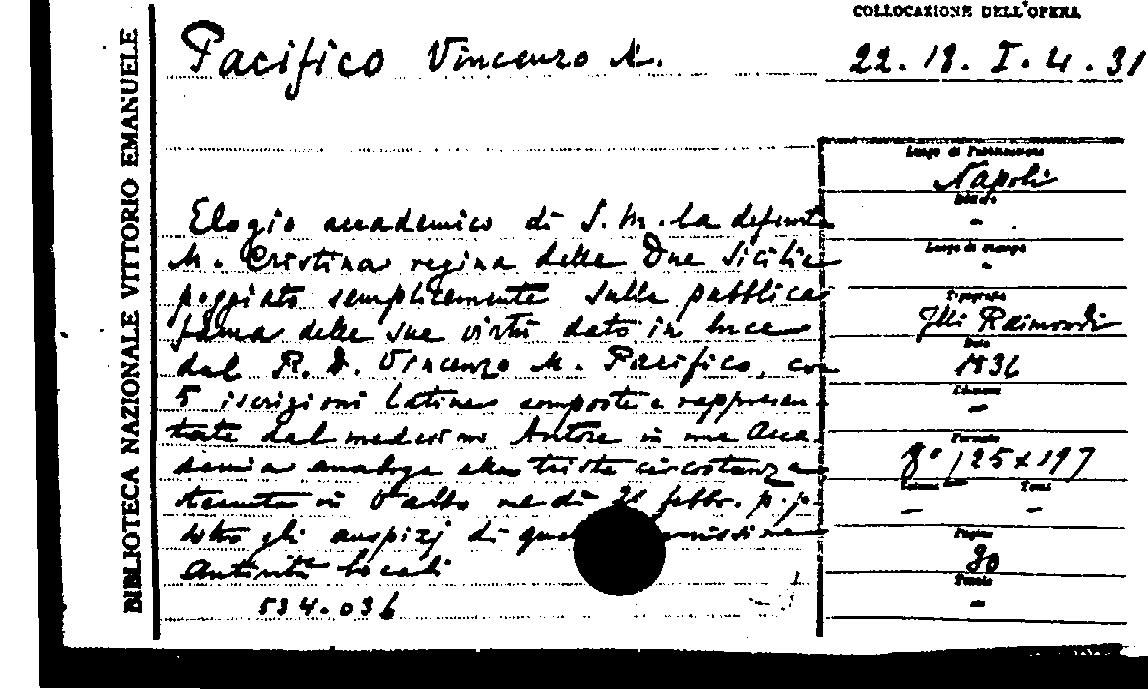 COLLOCAZIONE DELL'OPERA
22. 18. I. 4. 31
BIBLIOTECA NAZIONALE VITTORIO EMANUELE
Pacifico Vincenzo M.
Elogio accademico di S. M. la defunta
M. Cristina regina delle Due Sicilie
poggiato semplicemente sulla pubblica
fama delle sue virtù dato in luce
dal R. D. Vincenzo M. Pacifico, con
5 iscrizioni latine composte e rappresen
tate dal medesimo Autore in una Acca
demia analoga alla trista circostanza
tenuta in nel dì 21 febbr. p. p.
sotto gli auspizj di
Autorità locali
534.036
Luogo di Pubblicazione
Napoli
Editore
-
Luogo di stampa
-
Tipografia
F.lli Raimondi
Data
1836
Edizione
-
Formato
8° 125x197
Volumi Tomi
- -
Pagine
30
Tavole
-